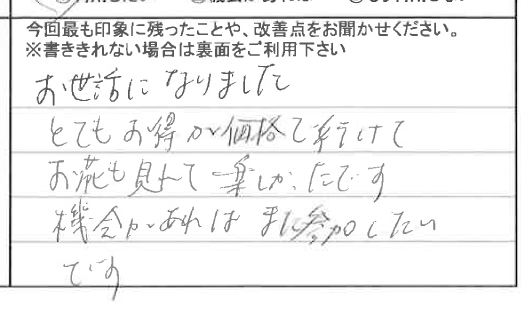 今回最も印象に残ったことや、改善点をお聞かせください。
※書ききれない場合は裏面をご利用下さい
お世話になりました
とてもお得な価格で行けて
お花も見れて楽しかったです
機会があればまた参加したい
です